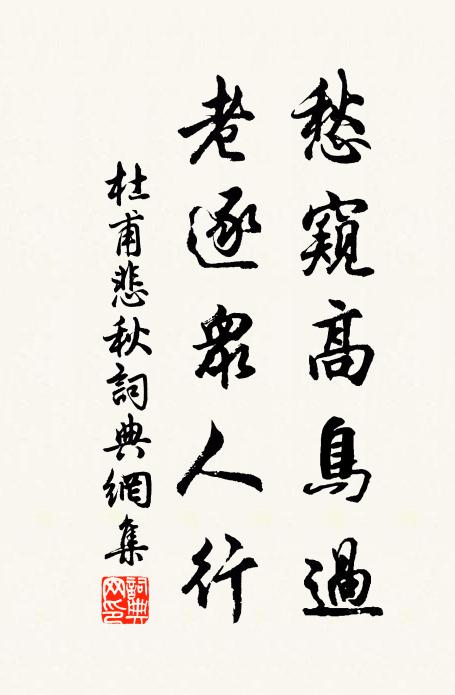 愁窺高鳥過
老逐眾人行
杜甫悲秋詞典網集
詞典
网印